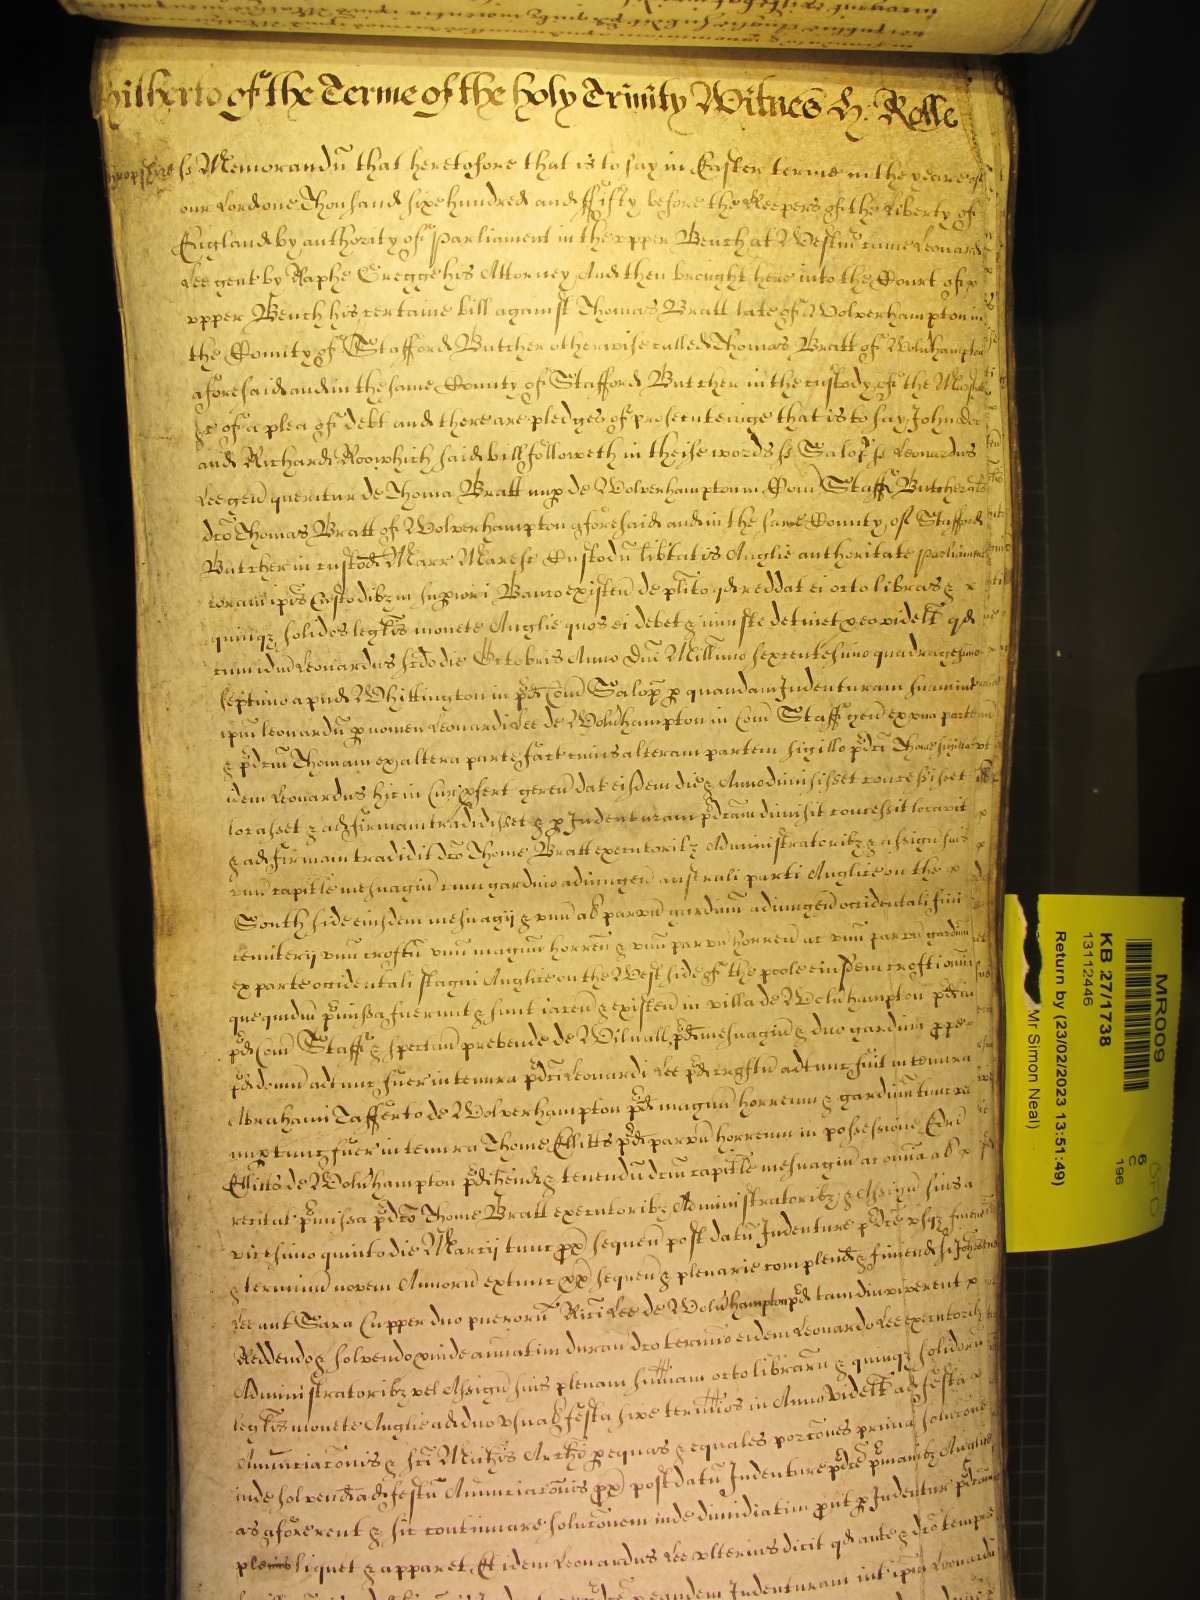 hitherto of the Terme of the holy Trinity Witnes H: Rolle
Shropshire ss Memorandū that heretofore that is to say in Easter terme in the yeare of
our Lord one Thousand sixe hundred and ffifty before the Keepers of the Liberty of
England by authority of Parliament in the vpper Bench at Westm̄ came Leonard
Lee gent by Raphe Gregge his Attorney And then brought here into the Court of ye
vpper Bench his certaine bill against Thomas Bratt late of Wolverhampton in
the County of Stafford Butcher otherwise called Thomas Bratt of Wolūhampton
aforesaid and in the same County of Stafford Butcher in the custody of the Marshall
&c of a plea of debt and there are pledges of prosecuteinge that is to say John Doe
and Richard Roo which said bill followeth in theise words ss Salop ss Leonardus
Lee gen̄ queritur de Thoma Bratt nup de Wolverhampton in Com̄ Staff Butcher als
dco Thomas Bratt of Wolverhampton aforesaid and in the same County of Stafford
Butcher in custod Marr Maresc Custodū lib̄tatis Anglie authoritate Parliamenti
coram ip̄is Custodibz in supiori Banco existen̄ de pl̄ito qd reddat ei octo libras &
quinqz solidos leglis monete Anglie quos ei debet & iniuste detinet p eo videlt qd
cum idm̄ Leonardus scdo die Octobris Anno Dn̄i Mill̄imo sexcentesimo quadragesimo
septimo apud Whittington in pd Com̄ Salop p quandam Indenturam suam int
ip̄m Leonardū p nomen Leonardi Lee de Wolūhampton in Com̄ Staff gen̄ ex vna parte
& pdcm̄ Thomam ex altera parte fact cuius alteram partem sigillo pdci Thome sigillat
idem Leonardus hic in Cur p̄fert geren̄ dat eisdem die & Anno dimisisset concessisset
locasset & ad firmam tradidisset & p Indenturam pdcam dimisit concessit locavit
& ad firmam tradidit dco Thome Bratt executoribz Administratoribz & assign̄ suis
vnū capitle mesuagiū cum gardino adiungen̄ australi parti Anglice on the
South side eiusdem mesuagij & vnū al parvū gardinū adiungen̄ occidentali fini
cemiterij vnū croftū vnū magnū horreū & vnū parvū horreū ac vnū parvū gardinū
ex parte occidentali stagni Anglice on the West side of the poole eiusdem crofti omīa
quequidm̄ p̄missa fuerunt & sunt iacen̄ & existen̄ in villa de Wolūhampton pd in
pd Com̄ Staff & spectan̄ prebende de Wilnall pd mesuagiū & duo gardina prope
pd domū adtunc fuer in tenura pdci Leonardi Lee pd croftū adtunc fuit in tenura
Abrahami Tafferto de Wolverhampton pd magnū horreum & gardinū tunc
nup tunc fuer in tenura Thome Ellitts pd parvū horreum in possessione Edri
Ellitts de Wolūhampton pd hend & tenendū dcm̄ capitle mesuagiū ac om̄ia al
recitat p̄missa pdco Thome Bratt executoribz Administratoribz & Assign̄ suis a
vicesimo quinto die Marcij tunc prox sequen̄ post datū Indenture pdce vsqz finem
& terminū novem Annorū extunc prox sequen̄ & plenarie complend & finiend si Johes
Lee aut Sara Cupper duo puerorū Rici Lee de Wolūhampton pd tam diu viverent
Reddendo & solvendo vnde annatim duran̄ dco termino eidem Leonardo Lee executoribz
Administratoribz vel Assign̄ suis plenam sum̄am octo librarū & quinqz solidorū
leglis monete Anglie ad duo vsual festa sive terminos in Anno videlt ad festa
Annunciac̄onis & sc̄i Mich̄is Arch̄i p equas & equales porc̄ones prima soluc̄one
inde solvend ad festū Annunciac̄onis prox post datū Indenture pdce p̄manibz Anglice
as aforerent & sic continuare soluc̄onem inde dimidiatim prout p Indentur pdcam
plenius liquet & apparet Et idem Leonardus Lee vlterius dicit qd ante & dco tempore
pdce p eandem Indenturam int ip̄m Leonardū
MR009
KB 27/1738
13112446
Return by (23/02/2023 13:51:49)
Mr Simon Neal)
6
C
196